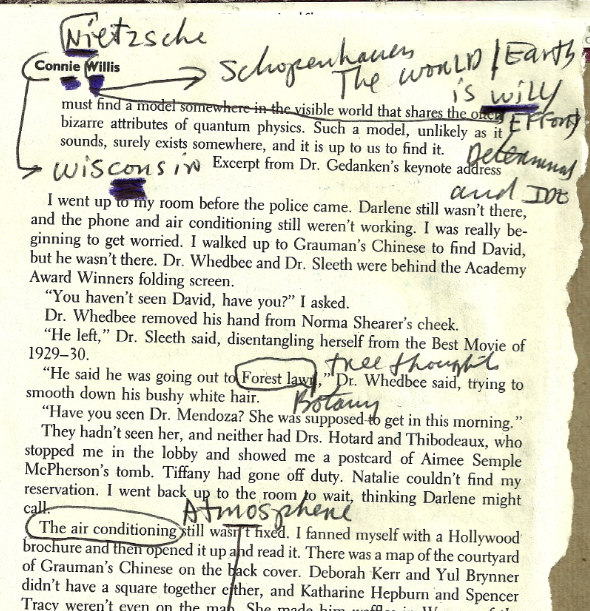 Nietzsche
Connie Willis
Schopenhauer
The WORLD / Earth
is will /
must find a model somewhere in the visible world that shares the often
bizarre attributes of quantum physics. Such a model, unlikely as it
Effort
sounds, surely exists somewhere, and it is up to us to find it.
Determined
wisconsin
Excerpt from Dr. Gedanken's keynote address
and
I went up to my room before the police came. Darlene still wasn't there,
and the phone and air conditioning still weren't working. I was really be-
ginning to get worried. I walked up to Grauman's Chinese to find David,
but he wasn't there. Dr. Whedbee and Dr. Sleeth were behind the Academy
Award Winners folding screen.
"You haven't seen David, have you?" I asked.
Dr. Whedbee removed his hand from Norma Shearer's cheek.
"He left," Dr. Sleeth said, disentangling herself from the Best Movie of
1929–30.
tree thoughts
"He said he was going out to Forest lawn," Dr. Whedbee said, trying to
smooth down his bushy white hair.
Botany
"Have you seen Dr. Mendoza? She was supposed to get in this morning."
They hadn't seen her, and neither had Drs. Hotard and Thibodeaux, who
stopped me in the lobby and showed me a postcard of Aimee Semple
McPherson's tomb. Tiffany had gone off duty. Natalie couldn't find my
reservation. I went back up to the room to wait, thinking Darlene might
call.
Atmosphere
The air conditioning still wasn't fixed. I fanned myself with a Hollywood
brochure and then opened it up and read it. There was a map of the courtyard
of Grauman's Chinese on the back cover. Deborah Kerr and Yul Brynner
didn't have a square together either, and Katharine Hepburn and Spencer
Tracy weren't even on the map. She made him waffles in